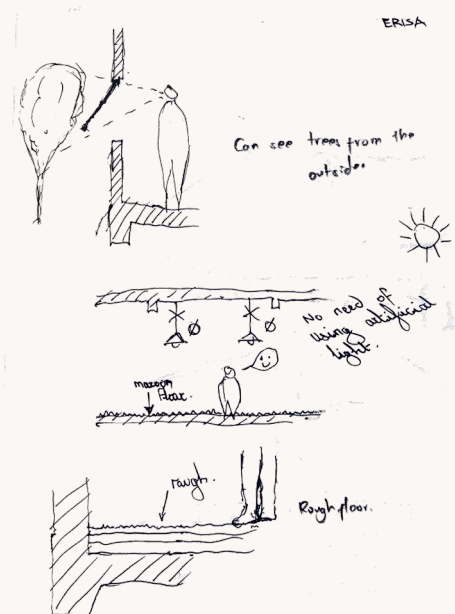 ERISA
Can see trees from the
outside.
No need of
using artificial
light.
maroon
floor.
rough.
Rough floor.